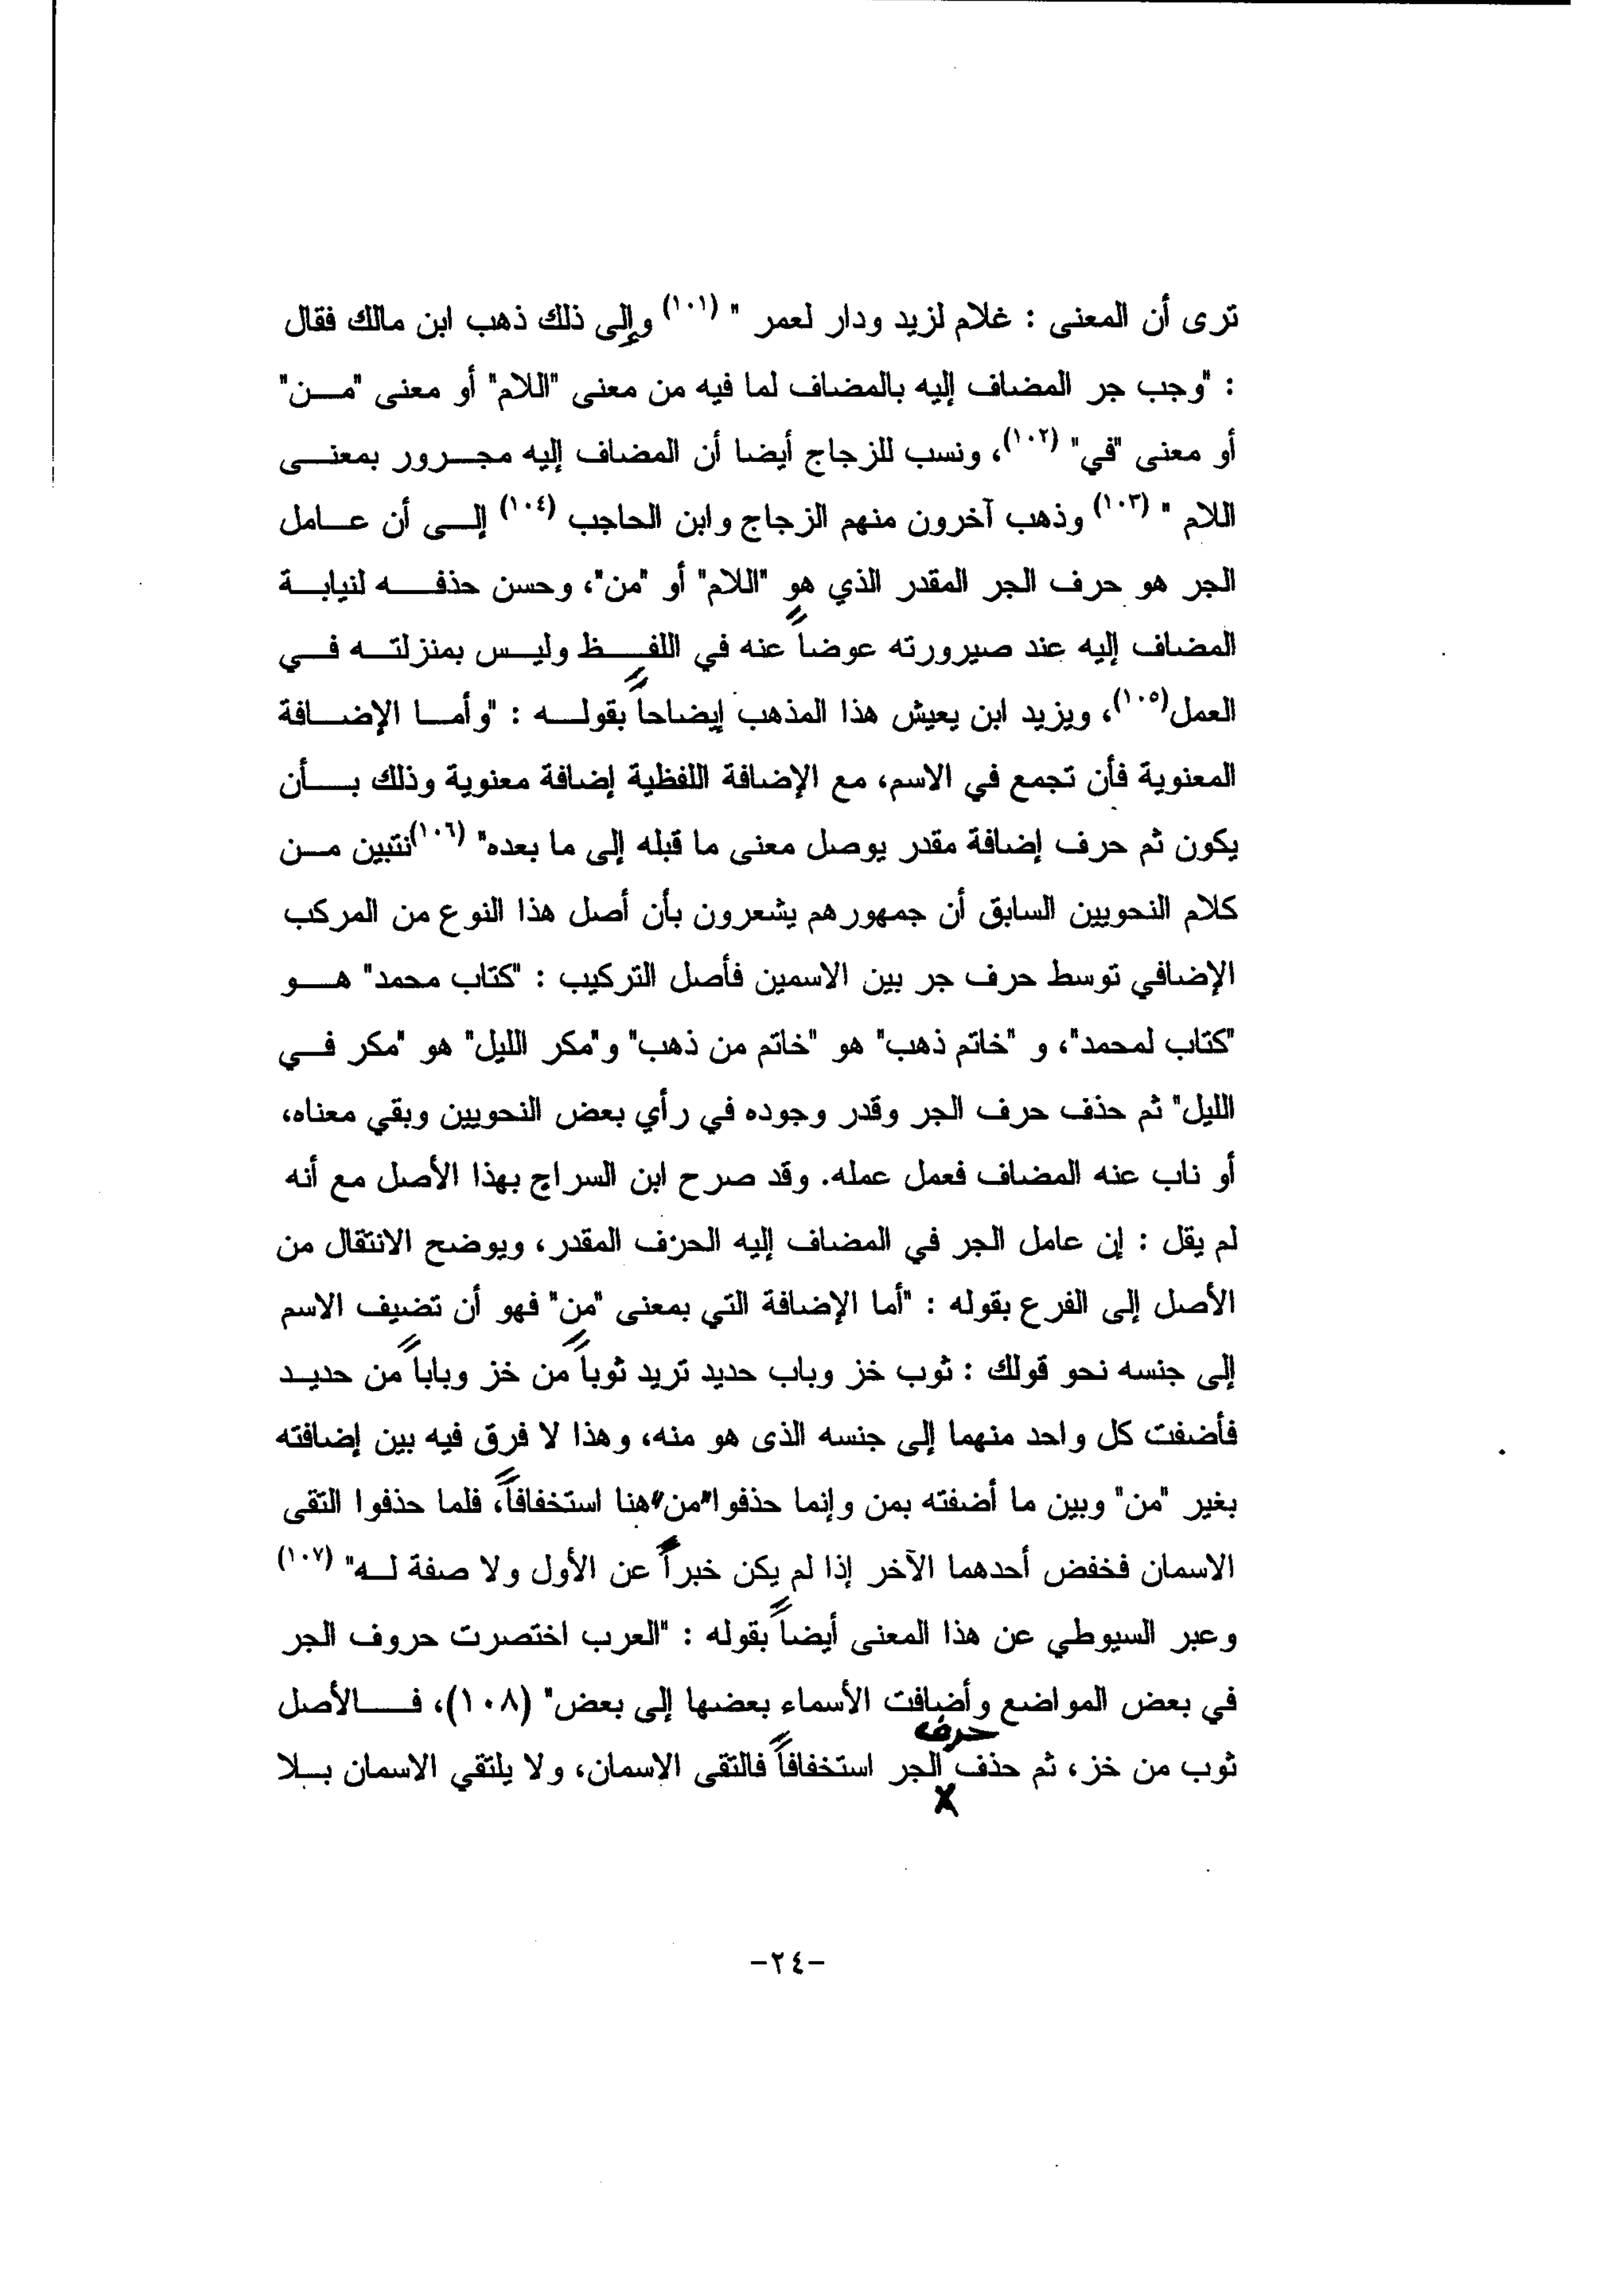 ترى أن المعنى : غلام لزيد ودار لعمر " (١٠١) وإلى ذلك ذهب ابن مالك فقال
: "وجب جر المضاف إليه بالمضاف لما فيه من معنى "اللام" أو معنى "من"
أو معنى "في" (١٠٢)، ونسب للزجاج أيضا أن المضاف إليه مجرور بمعنى
اللام " (١٠٣) وذهب آخرون منهم الزجاج وابن الحاجب (١٠٤) إلى أن عامل
الجر هو حرف الجر المقدر الذي هو "اللام" أو "من"، وحسن حذفه لنيابة
المضاف إليه عند صيرورته عوضاً عنه في اللفظ وليس بمنزلته في
العمل(١٠٥)، ويزيد ابن يعيش هذا المذهب إيضاحاً بقوله : "وأما الإضافة
المعنوية فأن تجمع في الاسم، مع الإضافة اللفظية إضافة معنوية وذلك بأن
يكون ثم حرف إضافة مقدر يوصل معنى ما قبله إلى ما بعده" (١٠٦)نتبين من
كلام النحويين السابق أن جمهورهم يشعرون بأن أصل هذا النوع من المركب
الإضافي توسط حرف جر بين الاسمين فأصل التركيب : "كتاب محمد" هو
"كتاب لمحمد"، و "خاتم ذهب" هو "خاتم من ذهب" و"مكر الليل" هو "مكر في
الليل" ثم حذف حرف الجر وقدر وجوده في رأي بعض النحويين وبقي معناه،
أو ناب عنه المضاف فعمل عمله. وقد صرح ابن السراج بهذا الأصل مع أنه
لم يقل : إن عامل الجر في المضاف إليه الحرف المقدر، ويوضح الانتقال من
الأصل إلى الفرع بقوله : "أما الإضافة التي بمعنى "من" فهو أن تضيف الاسم
إلى جنسه نحو قولك : ثوب خز وباب حديد تريد ثوباً من خز وباباً من حديد
فأضفت كل واحد منهما إلى جنسه الذى هو منه، وهذا لا فرق فيه بين إضافته
بغير "من" وبين ما أضفته بمن وإنما حذفوا"من"هنا استخفافاً، فلما حذفوا التقى
الاسمان فخفض أحدهما الآخر إذا لم يكن خبراً عن الأول ولا صفة له" (١٠٧)
وعبر السيوطي عن هذا المعنى أيضاً بقوله : "العرب اختصرت حروف الجر
في بعض المواضع وأضافت الأسماء بعضها إلى بعض" (١٠٨)، فالأصل
حرف
ثوب من خز، ثم حذف الجر استخفافاً فالتقى الاسمان، ولا يلتقي الاسمان بلا
X
-٢٤-